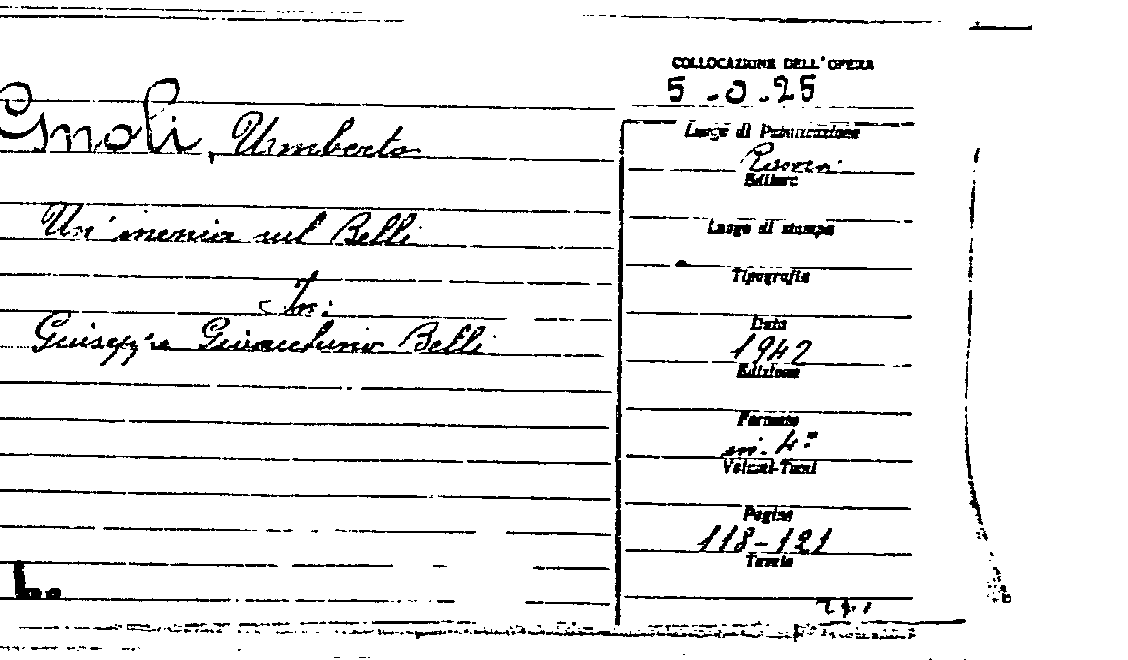 COLLOCAZIONE DELL'OPERA
5-0.25
Gnoli, Umberto
Luogo di Pubblicazione
Editore
Un'inenia sul Belli
Luogo di stampa
Tipografia
In:
Giuseppe Gioacchino Belli
Data
1942
Edizione
Formato
in. 4º
Volumi-Tomi
Pagine
118-121
Tavole